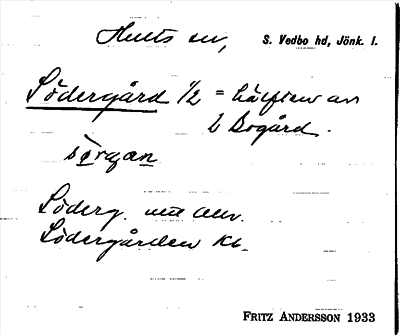 Hults sn, S. Vedbo hd, Jönk. l.
Södergård 1/2 = hälften av
L Bogård.
sörgan
Söderg.
Södergården Kb
FRITZ ANDERSSON 1933